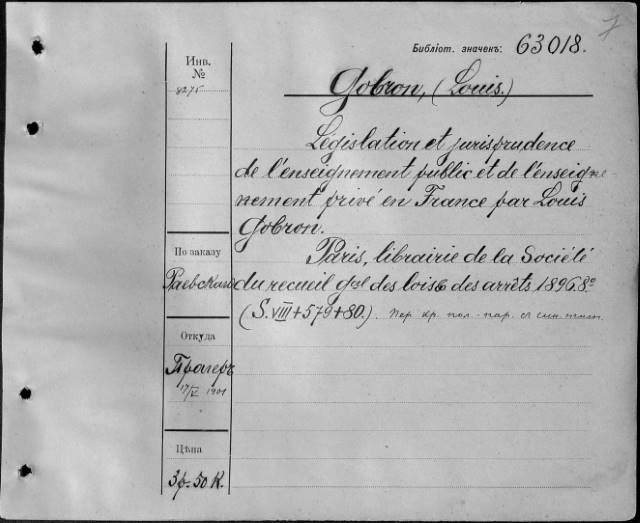 Библіот. значекъ: 63018.
Инв.
№
8275
Gobron, (Louis.)
Législation et jurisprudence
de l'enseignement public et de l'enseig-
nement privé en France par Louis
Gobron.
Paris, librairie de la Société
du recueil gral des lois & des arrêts 1896. 8º
(S. VIII+579+80.). пер. кр. пол.-пар. съ
По заказу
Раевскаго
Откуда
Трагеръ
17/V 1901
Цѣна
3р. 50 К.